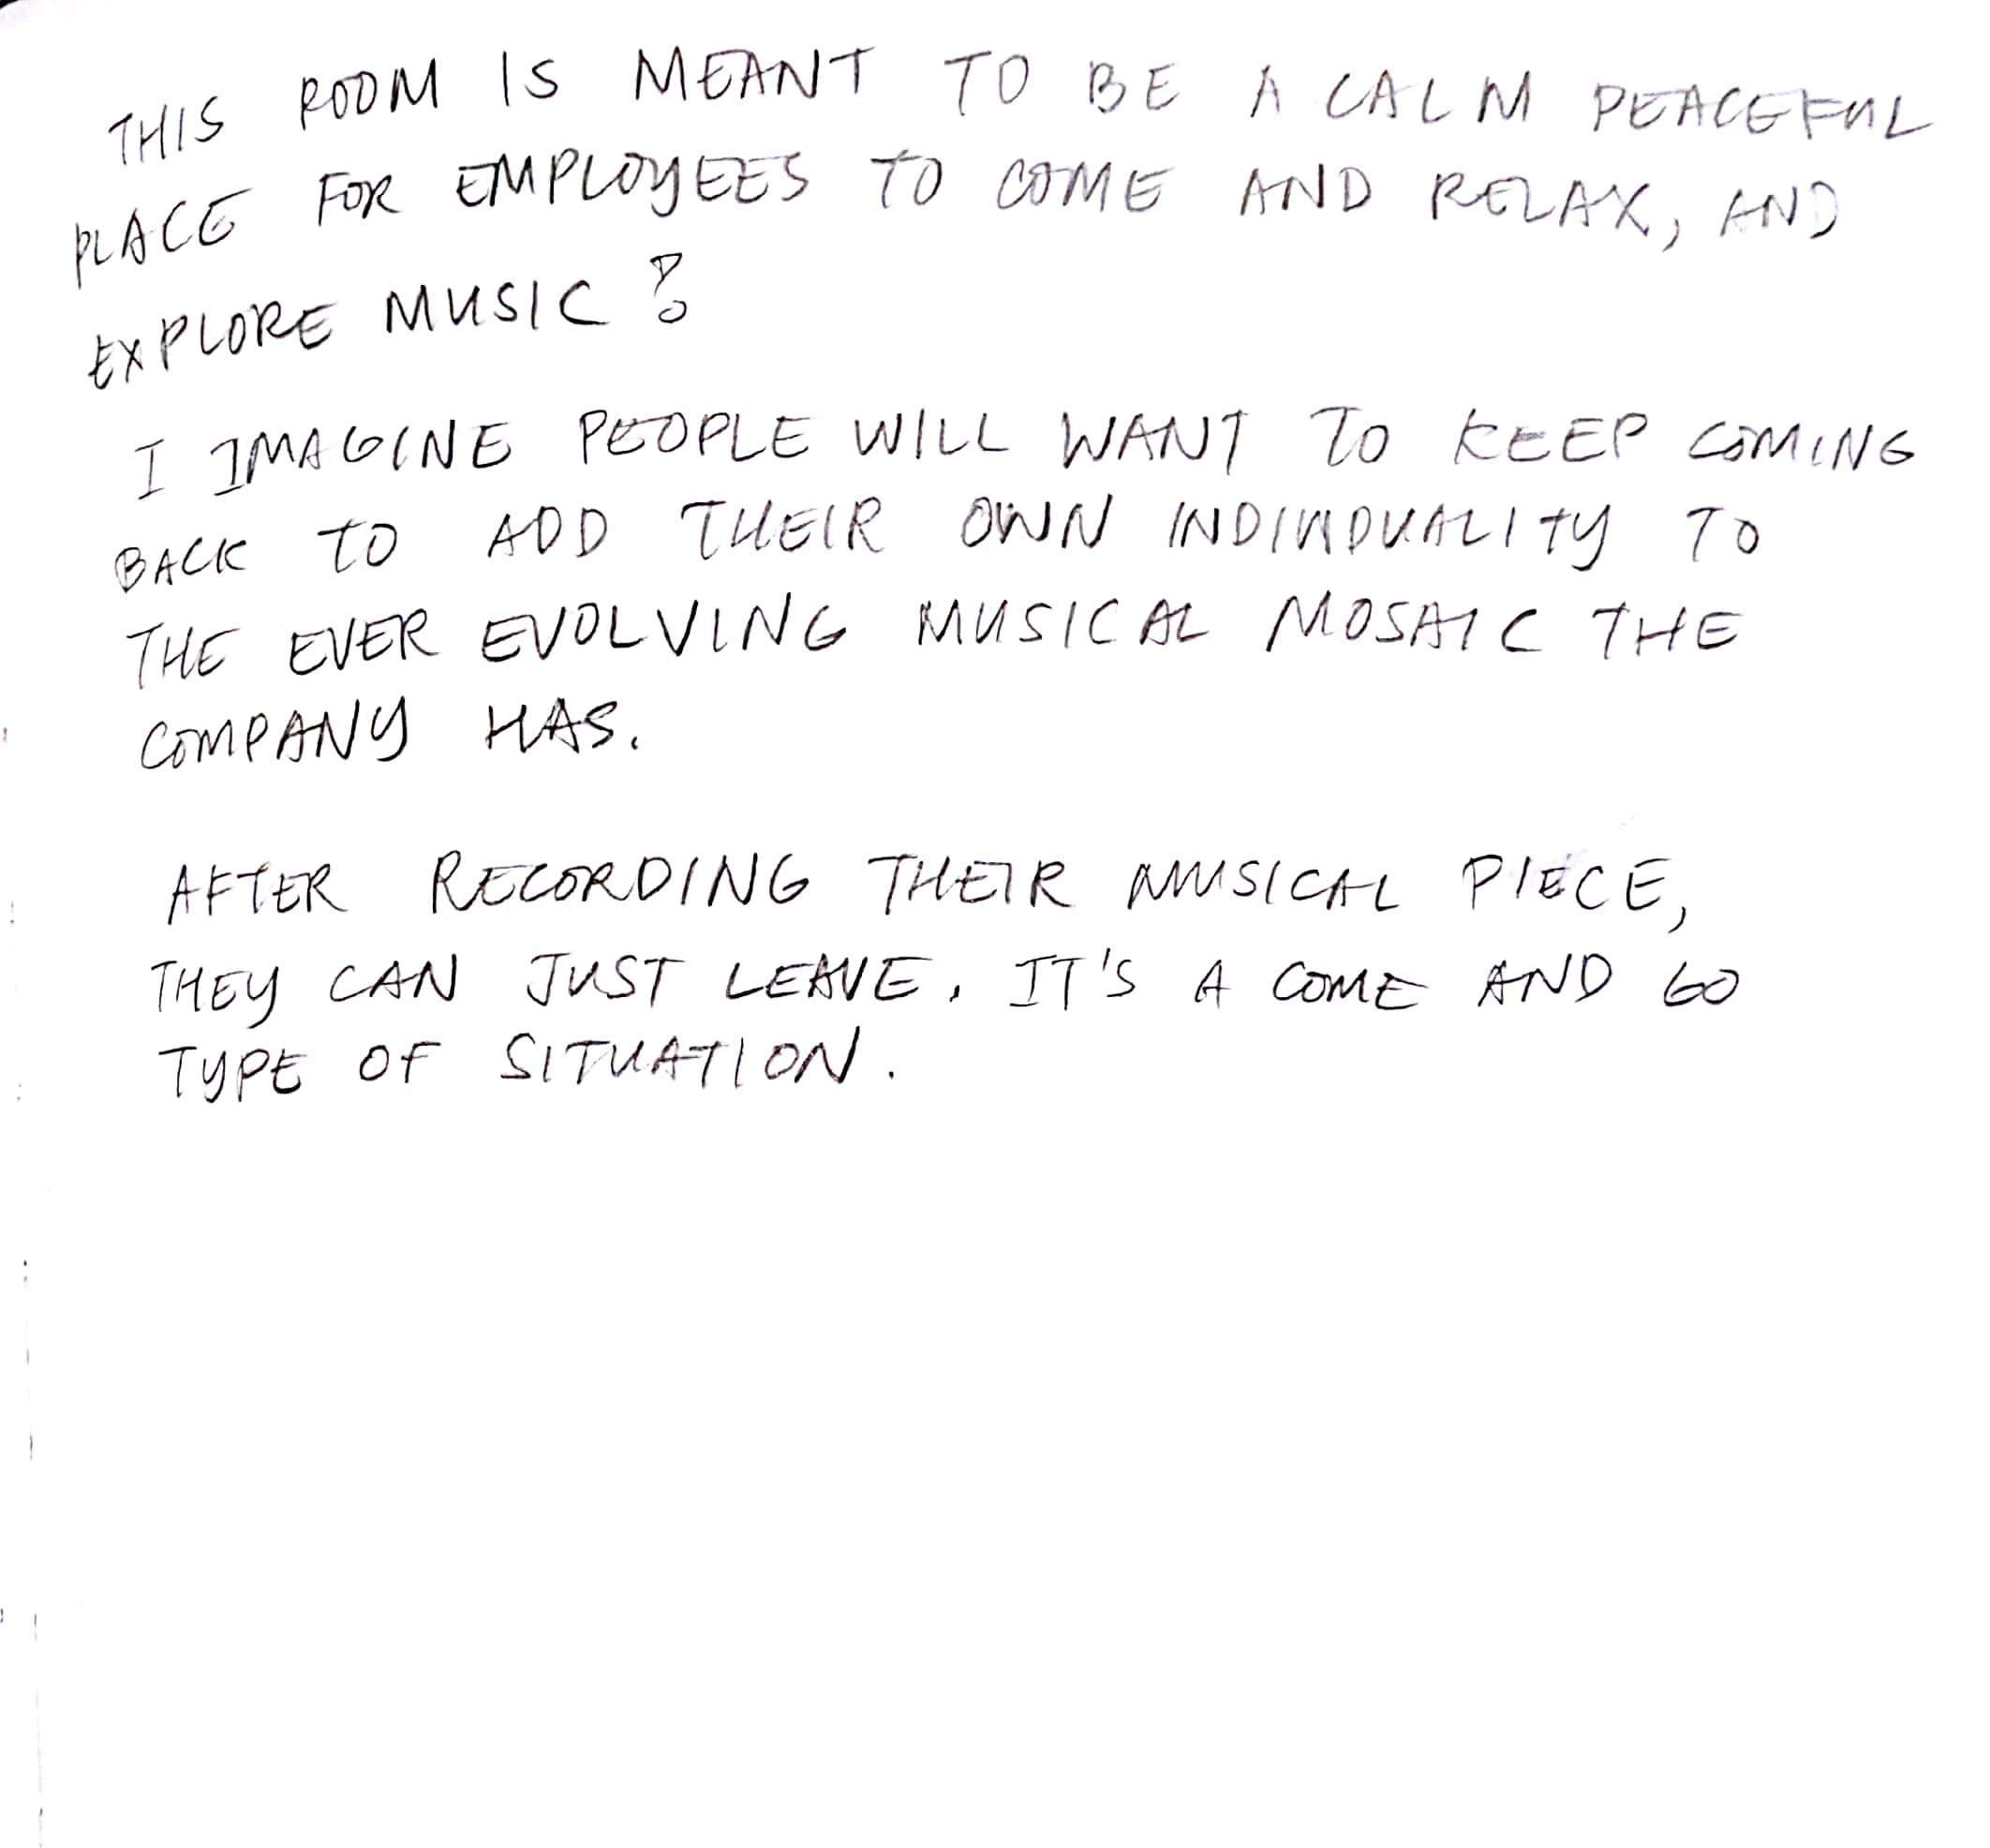 THIS ROOM IS MEANT TO BE A CALM PEACEFUL
PLACE FOR EMPLOYEES TO COME AND RELAX, AND
EXPLORE MUSIC!
I IMAGINE PEOPLE WILL WANT TO KEEP COMING
BACK TO ADD THEIR OWN INDIVIDUALITY TO
THE EVER EVOLVING MUSICAL MOSAIC THE
COMPANY HAS.
AFTER RECORDING THEIR MUSICAL PIECE,
THEY CAN JUST LEAVE. IT'S A COME AND GO
TYPE OF SITUATION.